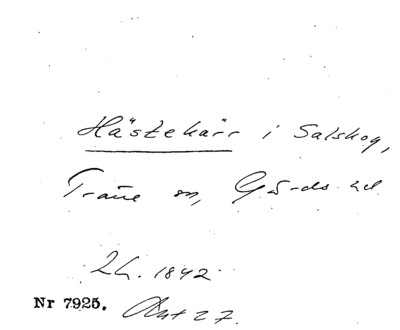 Hästekärr i Salskog,
Träne sn, Gärds hd.
Lh. 1842
Nr 7925. Akt 27.